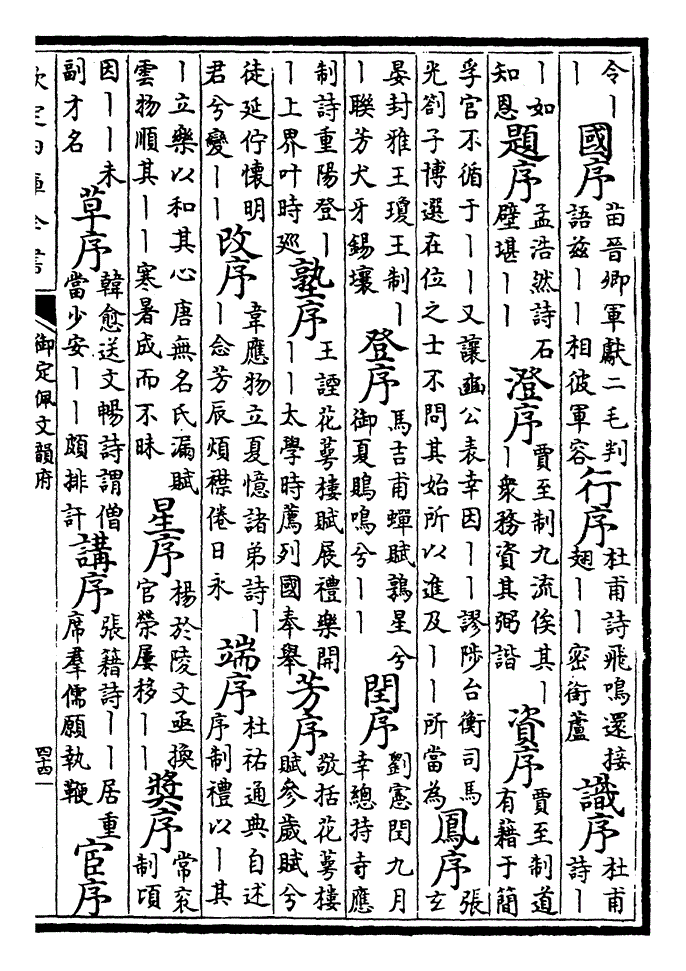 令丨丨國序苗晉卿軍獻二毛判語茲丨丨相彼軍容行序杜甫詩飛鳴還接翅丨丨密銜蘆識序杜甫詩丨
丨如知恩題序孟浩然詩石壁堪丨丨澄序賈至制九流俟其丨丨衆務資其弼諧資序賈至制道有藉于簡
孚官不循于丨丨又讓豳公表幸因丨丨謬陟台衡司馬光劄子博選在位之士不問其始所以進及丨丨所當為鳳序張玄
晏封雅王瓊王制丨丨聯芳犬牙錫壤登序馬吉甫蟬賦鶉星兮御夏鵙鳴兮丨丨閏序劉憲閏九月幸總持寺應
制詩重陽登丨丨上界叶時巡塾序王諲花萼樓賦展禮樂開丨丨太學時薦列國奉舉芳序敬括花萼樓賦參歲賦兮
徒延佇懷明君兮變丨丨改序韋應物立夏憶諸弟詩丨丨念芳辰煩襟倦日永端序杜祐通典自述序制禮以丨其
丨立樂以和其心唐無名氏漏賦雲物順其丨丨寒暑成而不昧星序楊於陵文亟換官榮屢移丨丨獎序常衮制頃
因丨丨未副才名草序韓愈送文暢詩謂僧當少安丨丨頗排訐講序張籍詩丨丨居重席羣儒願執鞭宦序
欽定四庫全書 御定佩文韻府 四十四